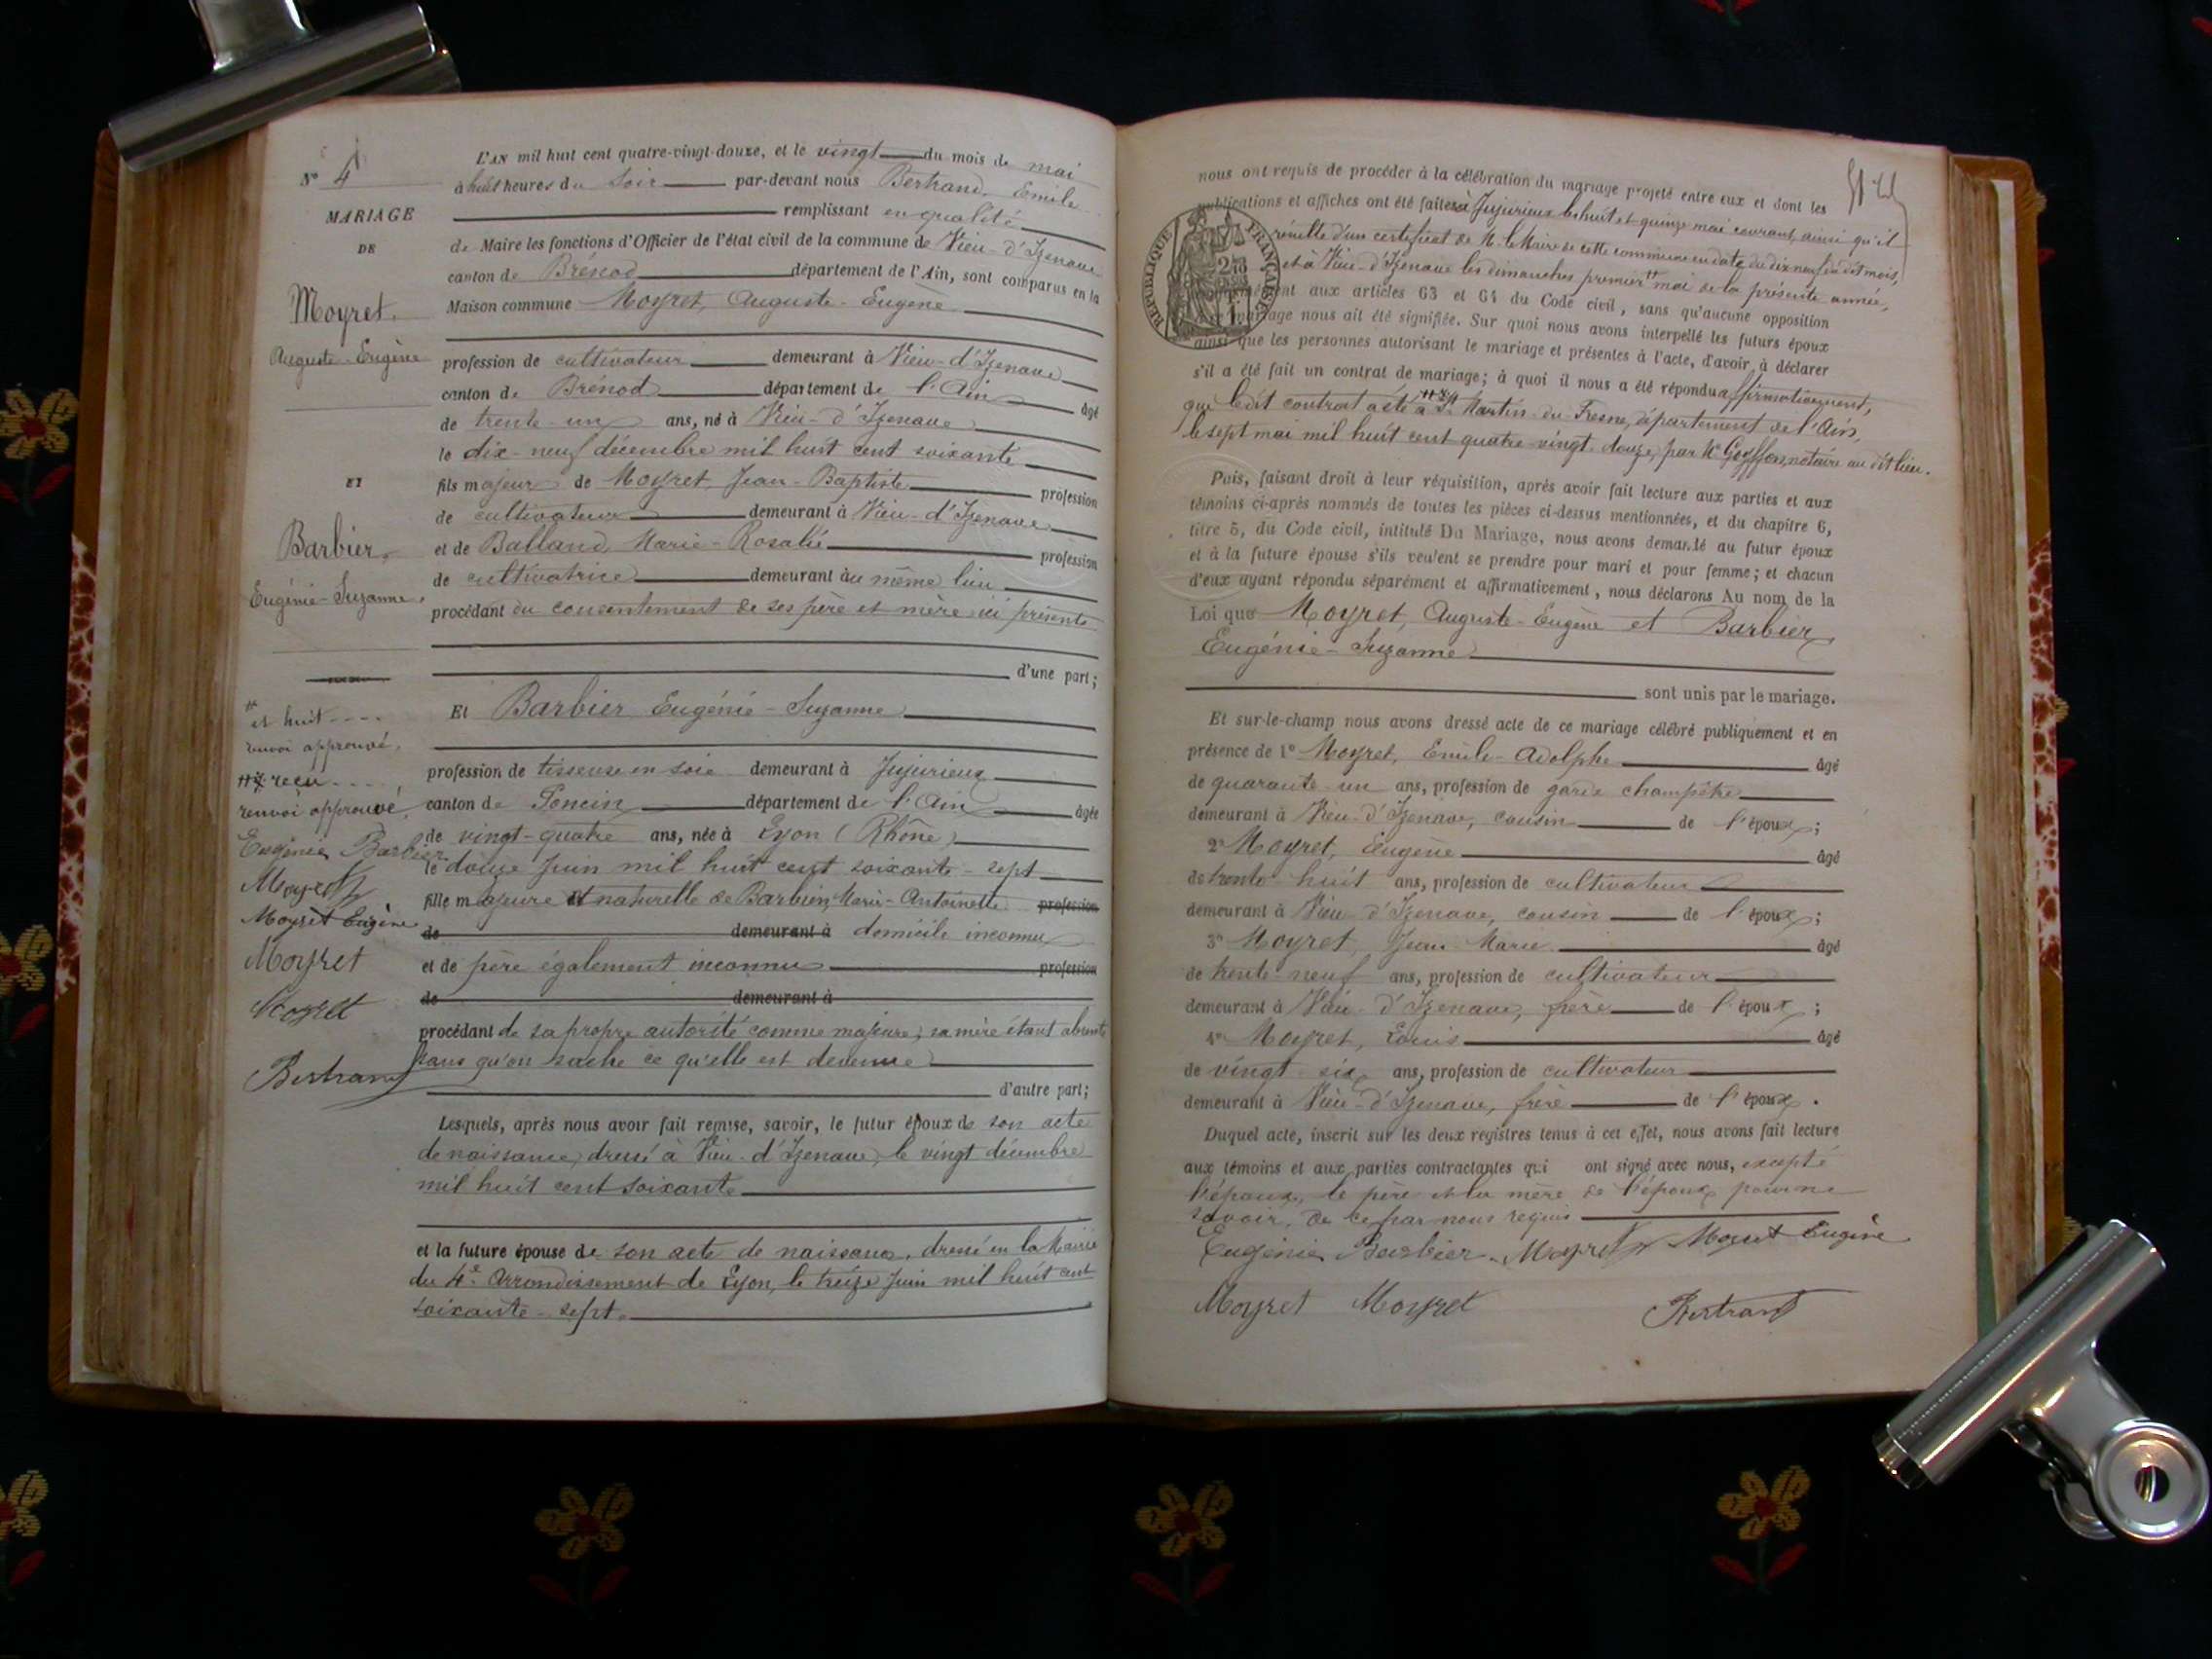 N° 4
MARIAGE
DE
Moyret
Auguste-Eugène
ET
Barbier
Eugénie-Suzanne
et huit ----
renvoi approuvé.
reçu ----
renvoi approuvé.
Eugénie Barbier
Moyret
Moyret Eugène
Moyret
Moyret
Bertrand
L'AN mil huit cent quatre-vingt-douze, et le vingt du mois de mai
à huit heures du soir par-devant nous Bertrand, Emile
remplissant en qualité
de Maire les fonctions d'Officier de l'état civil de la commune de Vieu-d'Izenave
canton de Brénod département de l'Ain, sont comparus en la
Maison commune Moyret, Auguste-Eugène
profession de cultivateur demeurant à Vieu-d'Izenave
canton de Brénod département de l'Ain âgé
de trente-un ans, né à Vieu-d'Izenave
le dix-neuf décembre mil huit cent soixante
fils majeur de Moyret, Jean-Baptiste profession
de cultivateur demeurant à Vieu-d'Izenave
et de Balland, Marie-Rosalie profession
de cultivatrice demeurant au même lieu
procédant du consentement de ses père et mère ici présents
d'une part;
Et Barbier Eugénie-Suzanne
profession de tisseuse en soie demeurant à Jujurieux
canton de Poncin département de l'Ain âgée
de vingt-quatre ans, née à Lyon (Rhône)
le douze Juin mil huit cent soixante-sept
fille majeure et naturelle de Barbier, Marie-Antoinette profession
de demeurant à domicile inconnu
et de père également inconnu profession
de demeurant à
procédant de sa propre autorité comme majeure; sa mère étant absente
sans qu'on sache ce qu'elle est devenue
d'autre part;
Lesquels, après nous avoir fait remise, savoir, le futur époux de son acte
de naissance, dressé à Vieu-d'Izenave, le vingt décembre
mil huit cent soixante
et la future épouse de son acte de naissance, dressé en la Mairie
du 4e Arrondissement de Lyon, le treize Juin mil huit cent
soixante-sept.
nous ont requis de procéder à la célébration du mariage projeté entre eux et dont les
publications et affiches ont été faites à Jujurieux les huit et quinze mai courant, ainsi qu'il
résulte d'un certificat de M. le Maire de cette commune en date du dix neuf du dit mois,
et à Vieu-d'Izenave les dimanches premier mai de la présente année,
conformément aux articles 63 et 64 du Code civil, sans qu'aucune opposition
au mariage nous ait été signifiée. Sur quoi nous avons interpellé les futurs époux
ainsi que les personnes autorisant le mariage et présentes à l'acte, d'avoir à déclarer
s'il a été fait un contrat de mariage; à quoi il nous a été répondu affirmativement,
que ledit contrat a été à St Martin-du-Fresne, département de l'Ain,
le sept mai mil huit cent quatre-vingt-douze, par Me Goyffon, notaire au dit lieu.
RÉPUBLIQUE FRANÇAISE
Puis, faisant droit à leur réquisition, après avoir fait lecture aux parties et aux
témoins ci-après nommés de toutes les pièces ci-dessus mentionnées, et du chapitre 6,
titre 5, du Code civil, intitulé Du Mariage, nous avons demandé au futur époux
et à la future épouse s'ils veulent se prendre pour mari et pour femme; et chacun
d'eux ayant répondu séparément et affirmativement, nous déclarons Au nom de la
Loi que Moyret, Auguste-Eugène et Barbier
Eugénie-Suzanne
sont unis par le mariage.
Et sur-le-champ nous avons dressé acte de ce mariage célébré publiquement et en
présence de 1° Moyret, Emile-Adolphe âgé
de quarante-un ans, profession de garde champêtre
demeurant à Vieu-d'Izenave, cousin de l'époux;
2° Moyret, Eugène âgé
de trente-huit ans, profession de cultivateur
demeurant à Vieu-d'Izenave, cousin de l'époux;
3° Moyret, Jean Marie âgé
de trente-neuf ans, profession de cultivateur
demeurant à Vieu-d'Izenave, frère de l'époux;
4° Moyret, Louis âgé
de vingt-six ans, profession de cultivateur
demeurant à Vieu-d'Izenave, frère de l'époux.
Duquel acte, inscrit sur les deux registres tenus à cet effet, nous avons fait lecture
aux témoins et aux parties contractantes qui ont signé avec nous, excepté
l'époux, le père et la mère de l'époux pour ne
savoir, de ce par nous requis
Eugénie Barbier Moyret Moyret Eugène
Moyret Moyret Bertrand